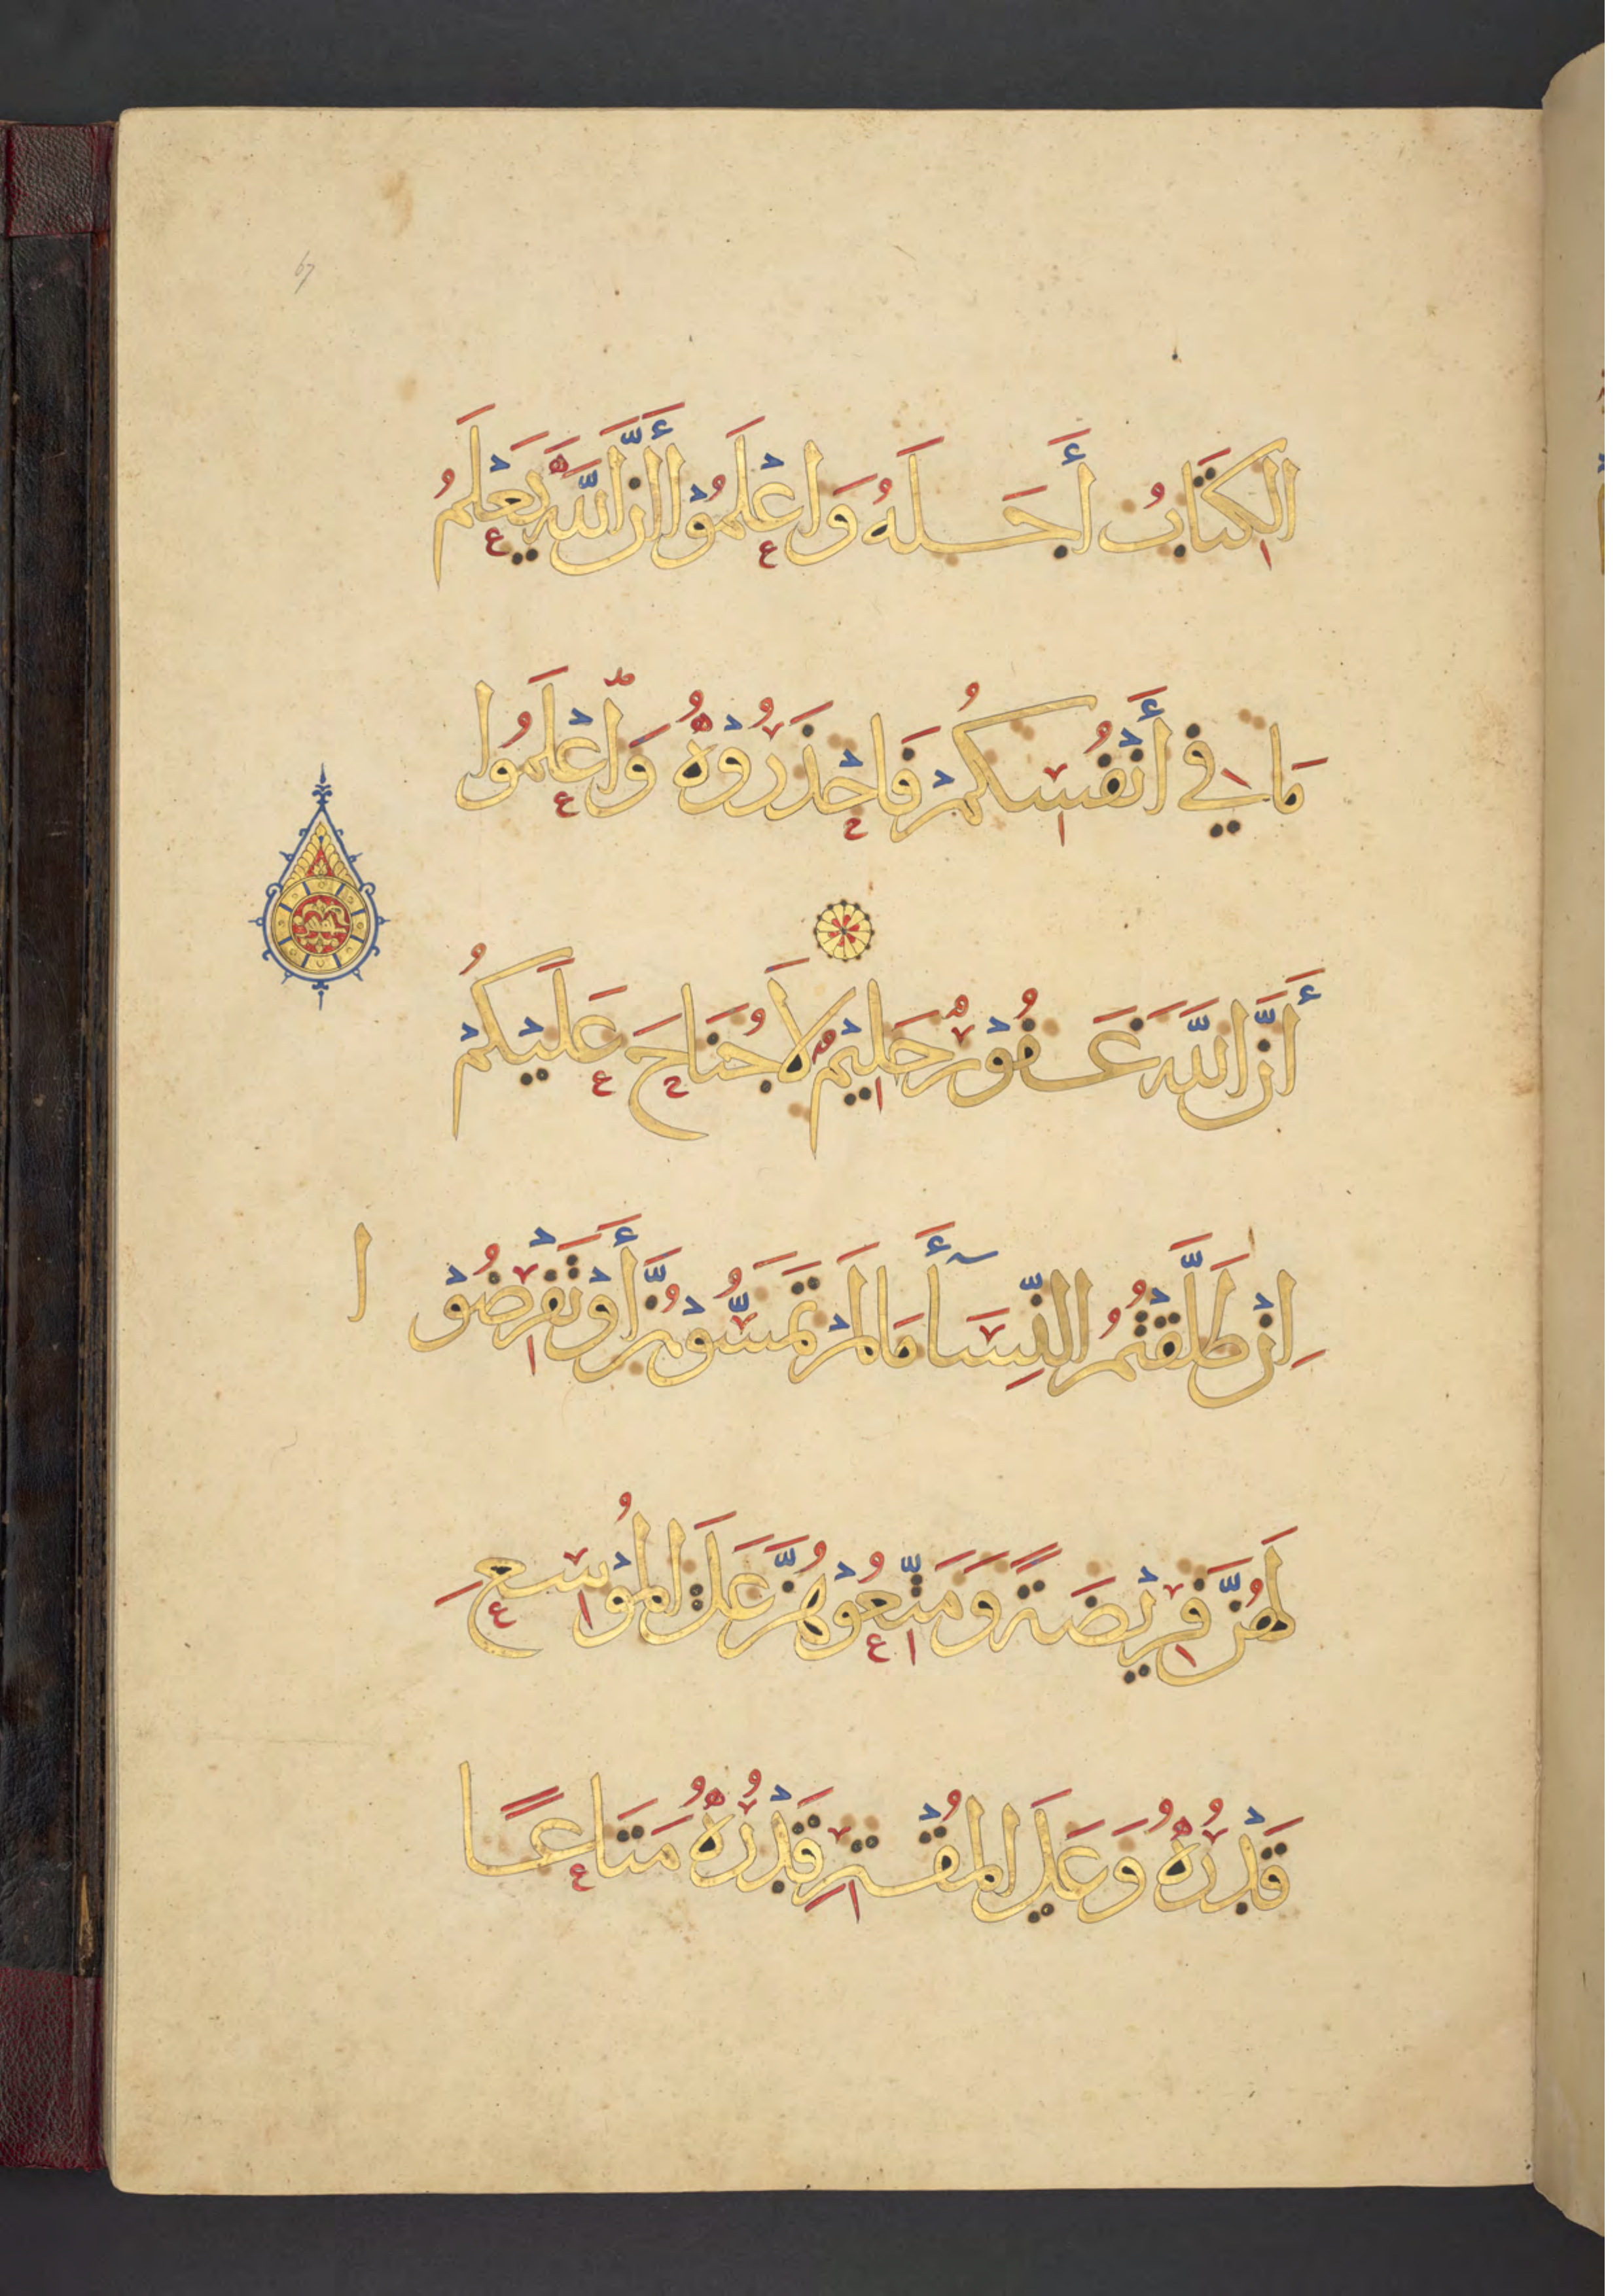 67
الكِتَابُ أَجَلَهُ وَاعْلَمُوْا أَنَّ اللَّهَ يَعْلَمُ
مَا فِي أَنْفُسِكُمْ فَاحْذَرُوْهُ وَاعْلَمُوا
أَنَّ اللَّهَ غَفُوْرٌ حَلِيْمٌ لَا جُنَاحَ عَلَيْكُمْ
إِنْ طَلَّقْتُمُ النِّسَآءَ مَا لَمْ تَمَسُّوْهُنَّ أَوْ تَفْرِضُوْا
لَهُنَّ فَرِيْضَةً وَمَتِّعُوْهُنَّ عَلَى الْمُوْسِعِ
قَدْرُهُ وَعَلَى الْمُقْتِرِ قَدْرُهُ مَتَاعًا